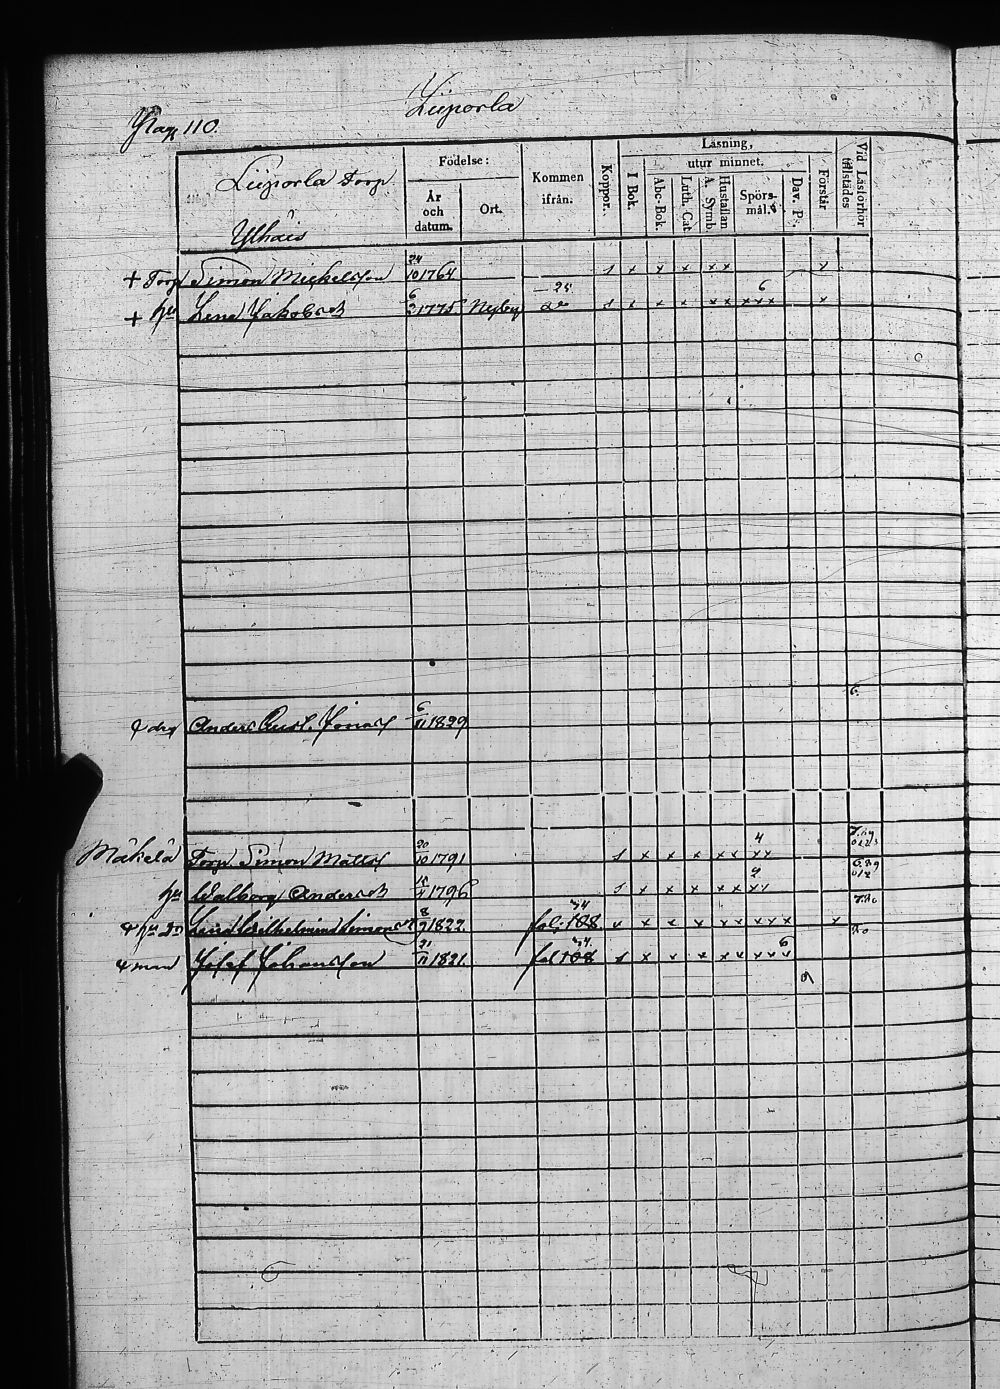 Liiporla
Pag 110.
Liiporla Torp.
Ylhäis
Födelse:
År och datum.
Ort.
Kommen ifrån.
Koppor.
Läsning,
I Bok.
utur minnet.
Abc-Bok.
Luth. Cat
A. Symb.
Hustaflan
Spörsmål.
Dav. Ps.
Förstår
Vid Läsförhör tillstädes
+ Torp Simon Mickelsson 24/10 1764 s x x x x x x
+ hu Lena Jakobsd 6/2 1775 Nyby 25 s x x x x x x x x 6 x
6.
drg Anders Gust. Jonass 6/11 1829
Mäkelä Torp. Simon Mattss 20/10 1791 s x x x x x x x 4
hu Walborg Andersd 1796 s x x x x x x x
Lena Wilhelmina Simonsd 8/9 1822. fol: 108 x x x x x x x x x x
man Josef Johansson 21/11 1821. fol 108 s x x x x x x x x 6